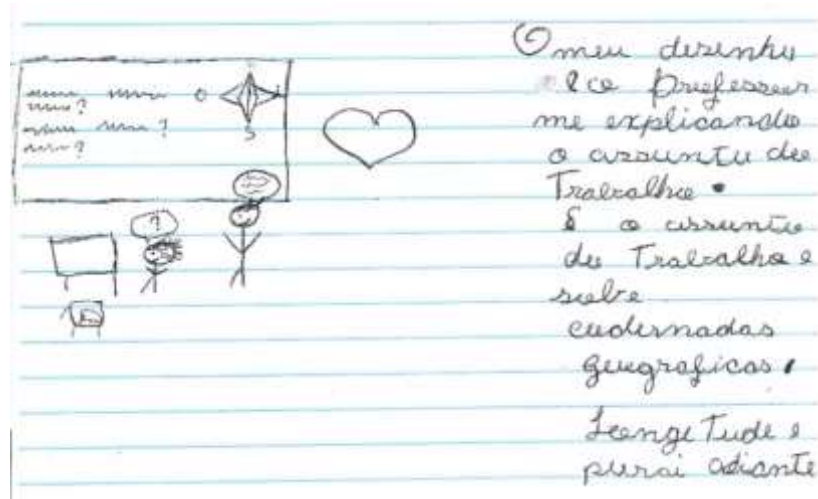 O
S
?
O meu desenhu
e o professor
me explicando
o assuntu du
Trabralho.
E o assunto
du Trabralho e
sobre
cuodernadas
geugraficas.
Longetude e
purai adiante